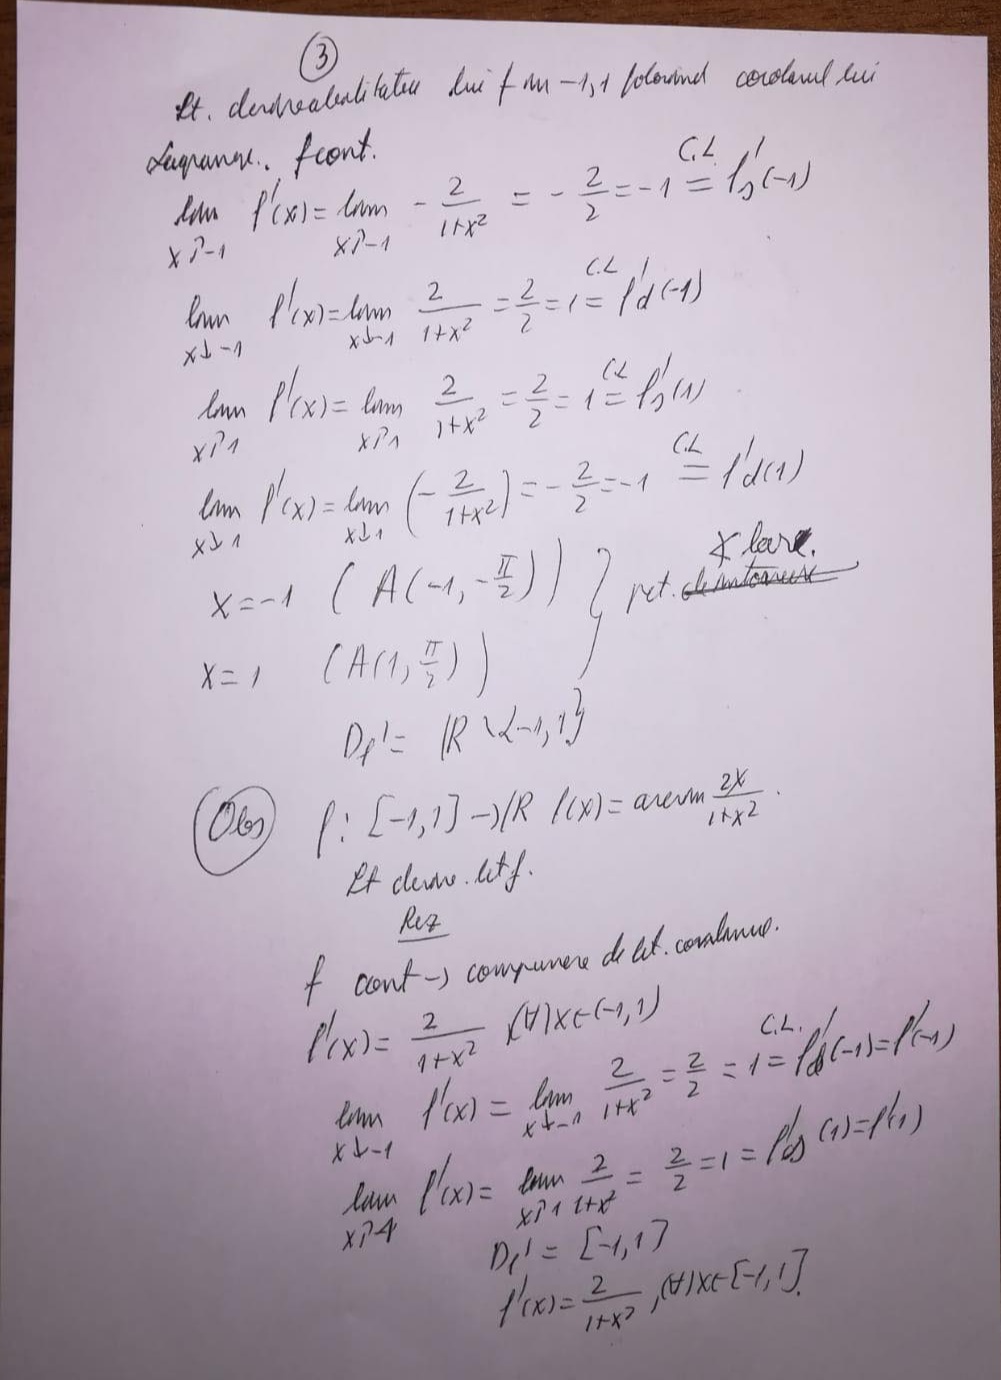 ③
St. derivabilitatea lui f în -1, 1 folosind corolarul lui
Lagrange. f cont.
lim x↑-1 f'(x) = lim x↑-1 - 2/(1+x²) = - 2/2 = -1 =(C.L) f's(-1)
lim x↓-1 f'(x) = lim x↓-1 2/(1+x²) = 2/2 = 1 =(C.L) f'd(-1)
lim x↑1 f'(x) = lim x↑1 2/(1+x²) = 2/2 = 1 =(C.L) f's(1)
lim x↓1 f'(x) = lim x↓1 (- 2/(1+x²)) = - 2/2 = -1 =(C.L) f'd(1)
x = -1 (A(-1, -π/2)) } pct.
x = 1 (A(1, π/2))
Df' = ℝ \ {-1, 1}
Obs f: [-1,1] → ℝ f(x) = arcsin 2x/(1+x²).
St deriv. lui f.
Rez
f cont → compunere de fct. continue.
f'(x) = 2/(1+x²) (∀) x ∈ (-1, 1)
lim x↓-1 f'(x) = lim x↓-1 2/(1+x²) = 2/2 = 1 =(C.L.) f'd(-1) = f'(-1)
lim x↑1 f'(x) = lim x↑1 2/(1+x²) = 2/2 = 1 = f's(1) = f'(1)
Df' = [-1, 1]
f'(x) = 2/(1+x²), (∀) x ∈ [-1, 1].